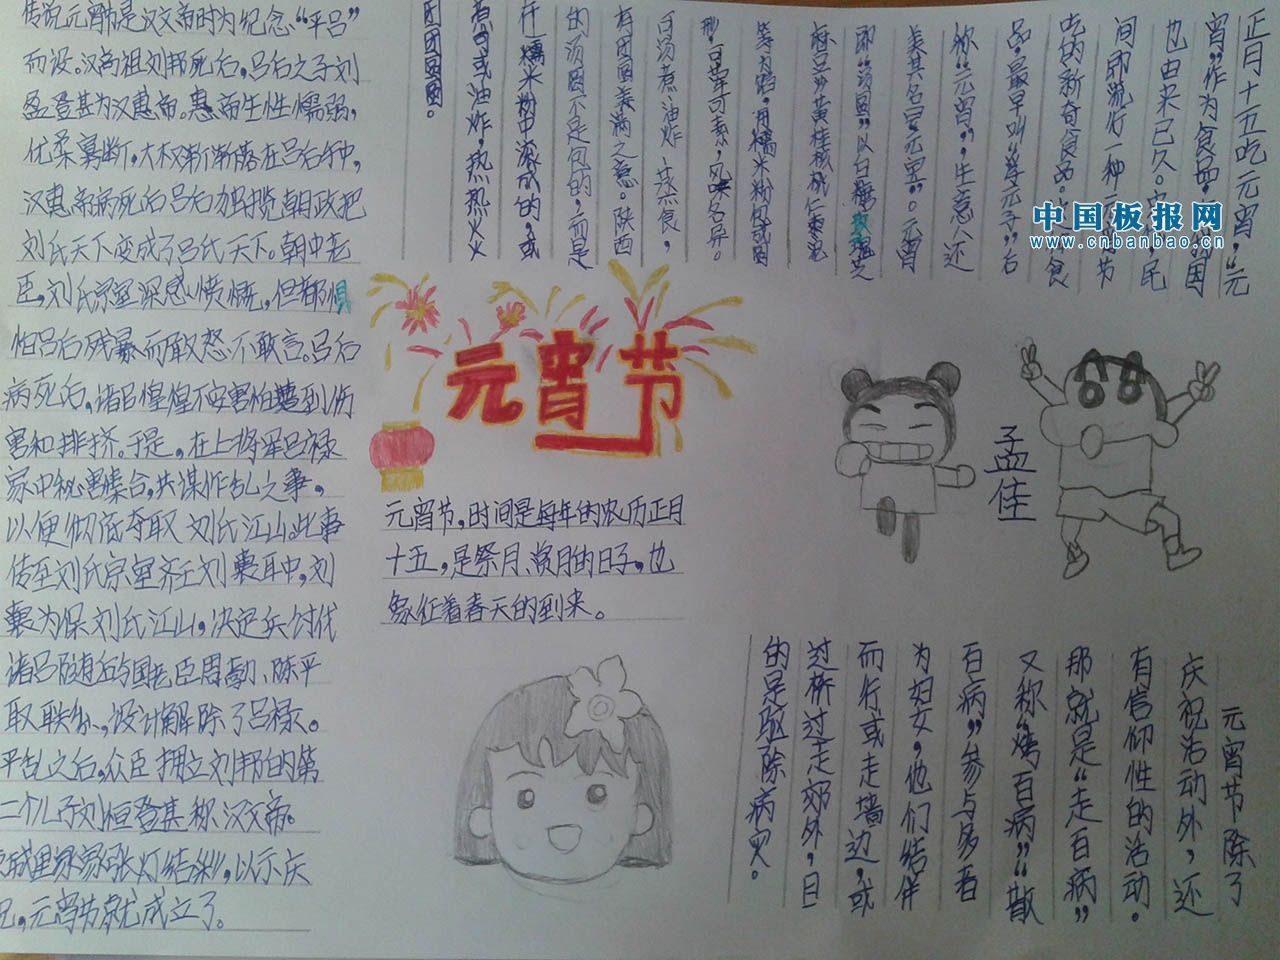 传说元宵节是汉文帝时为纪念“平吕”
而设。汉高祖刘邦死后,吕后之子刘
盈登基为汉惠帝。惠帝生性懦弱,
优柔寡断,大权渐渐落在吕后手中,
汉惠帝病死后吕后独揽朝政把
刘氏天下变成了吕氏天下。朝中老
臣,刘氏宗室深感愤慨,但都惧
怕吕后残暴而敢怒不敢言。吕后
病死后,诸吕惶惶不安害怕遭到伤
害和排挤。于是,在上将军吕禄
家中秘密集合,共谋作乱之事,
以便彻底夺取刘氏江山。此事
传至刘氏宗室齐王刘襄耳中,刘
襄为保刘氏江山,决定兵讨伐
诸吕随后与开国老臣周勃、陈平
取联系,设计解除了吕禄。
平乱之后,众臣拥立刘邦的第
二个儿子刘恒登基称汉文帝。
城里家家张灯结彩,以示庆
元宵节就成立了。
正月十五吃元宵,“元
宵”作为食品,在我国
也由来已久。宋代,民
间即流行一种元宵节
吃的新奇食品。这种食
品,最早叫“浮元子”后
称“元宵”,生意人还
美其名曰“元宝”。元宵
即“汤圆”以白糖、玫瑰、芝
麻、豆沙、黄桂、核桃仁、枣泥
等为馅,用糯米粉包成圆
形,可荤可素,风味各异。
可汤煮、油炸、蒸食,
有团圆美满之意。陕西
的汤圆不是包的,而是
在糯米粉中滚成的,或
煮司或油炸,热热火火
团团圆圆。
元宵节
元宵节,时间是每年的农历正月
十五,是祭月、赏月的日子,也
象征着春天的到来。
孟佳
元宵节除了
庆祝活动外,还
有信仰性的活动。
那就是“走百病”
又称“烤百病”“散
百病”参与多者
为妇女,他们结伴
而行或走墙边,或
过桥过走郊外,目
的是驱除病灾。
中国板报网
www.cnbanbao.cn